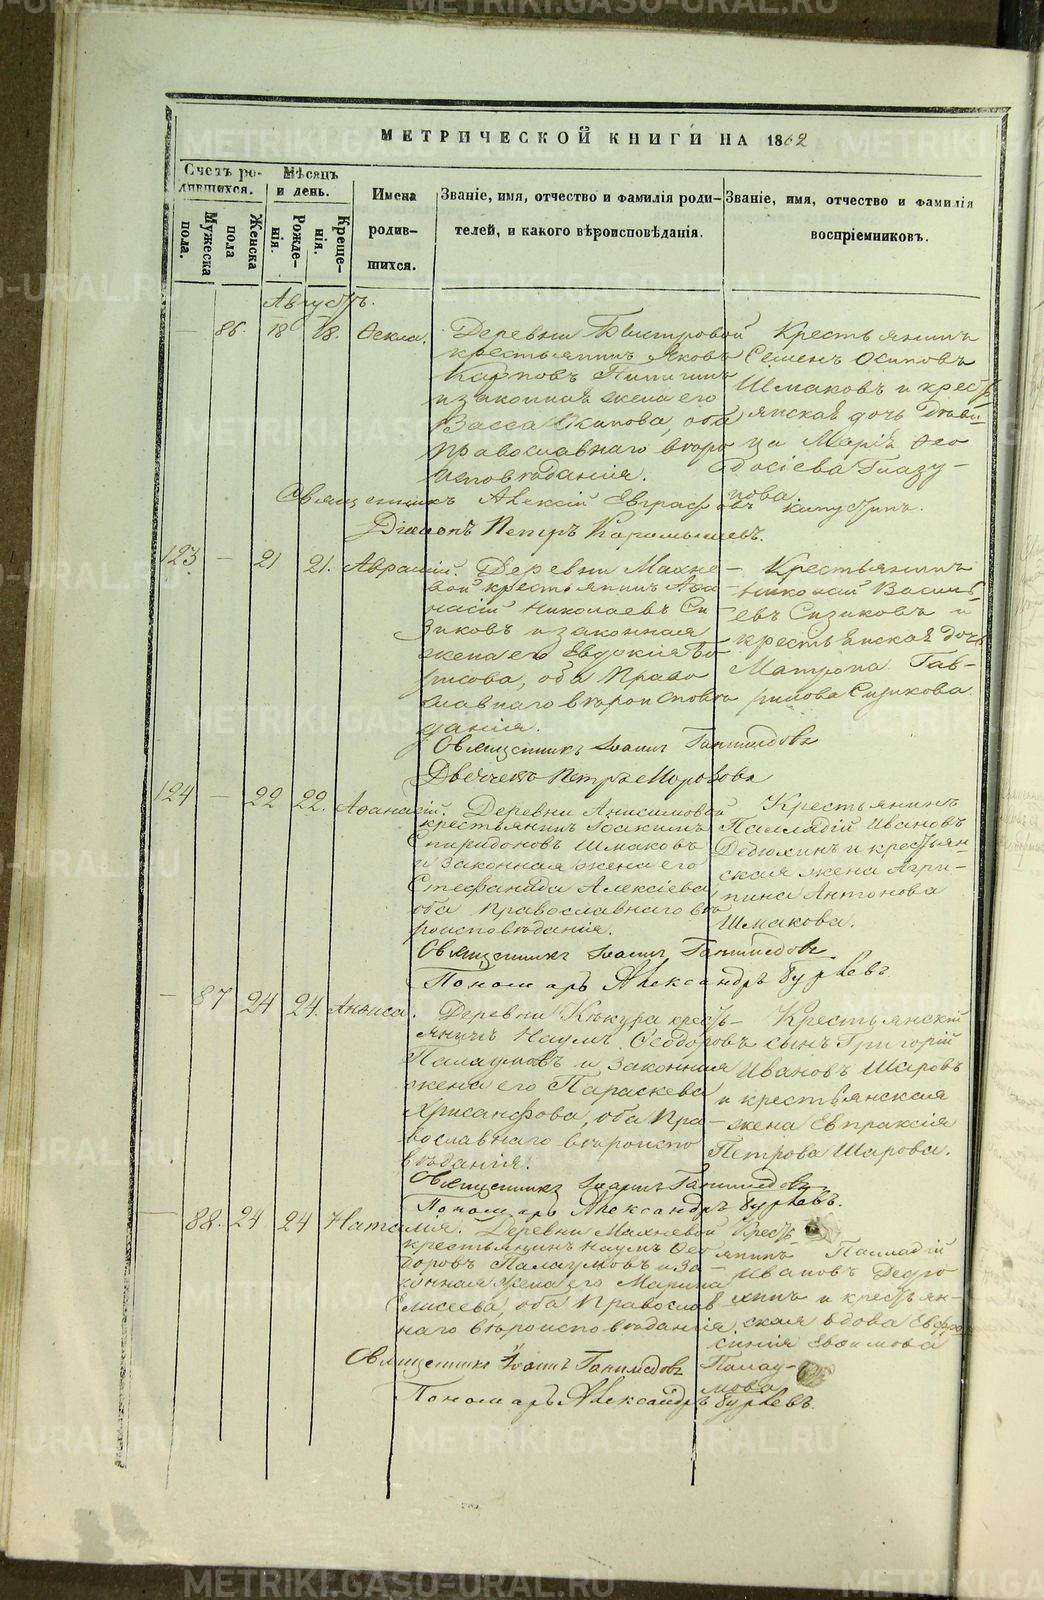 МЕТРИЧЕСКОЙ КНИГИ НА 1862
Счетъ ро-
дившихся.
Мѣсяцъ
и день.
Мужеска
пола.
Женска
пола
Рожде-
нія.
Креще-
нія.
Имена
родив-
шихся.
Званіе, имя, отчество и фамилія роди-
телей, и какого вѣроисповѣданія.
Званіе, имя, отчество и фамилія
воспріемниковъ.
Августъ.
— 86. 18 18. Ѳекла.
Деревни Быстровой
крестьянинъ Яковъ
Карповъ
и законная жена его
Васса, оба
православнаго вѣро
исповѣданія.
Крестьянинъ
Семенъ Осиповъ
Шмаковъ и кресть
янская дочь дѣви-
ца Марія Ѳео
досіева Глазу-
нова.
Священникъ Алексій Евграфовъ Капустинъ.
Діаконъ Петръ Карамышевъ.
123. — 21 21. Аврамій.
Деревни Махне-
вой крестьянинъ Аѳа-
насій Николаевъ Си-
зиковъ и законная
жена его Евдокія Бо
рисова, оба Право
славнаго вѣроисповѣ
данія.
Крестьянинъ
Николай Василь
евъ Сизиковъ и
крестьянская дочь
Матрона Гав-
рилова Сизикова.
Священникъ Іоаннъ Ганимедовъ
Дьячекъ Петръ Морозовъ
124 — 22 22. Аѳанасій.
Деревни Анисимовой
крестьянинъ Іоакимъ
Спиридоновъ Шмаковъ
и законная жена его
Стефанида Алексіева,
оба православнаго вѣ
роисповѣданія.
Крестьянинъ
Палладій Ивановъ
Дедюхинъ и крестьян-
ская жена Агри-
пина Антонова
Шмакова.
Священникъ Іоаннъ Ганимедовъ
Пономарь Александръ Гурьевъ
— 87 24 24. Анѳиса.
Деревни Кокура кресть-
янинъ Наумъ Ѳеодоровъ
Палаумовъ и законная
жена его Параскева
Хрисанфова, оба Пра-
вославнаго вѣроиспо
вѣданія.
Крестьянскій
сынъ Григорій
Ивановъ Шаровъ
и крестьянская
жена Евпраксія
Петрова Шарова.
Священникъ Іоаннъ Ганимедовъ
Пономарь Александръ Гурьевъ.
— 88. 24 24 Наталія.
Деревни Махневой
крестьянинъ Наумъ Ѳео
доровъ Палаумовъ и за-
конная жена его Марина
Елисеева, оба Православ
наго вѣроисповѣданія.
Кресть-
янинъ Палладій
Ивановъ Дедю
хинъ и крестьян-
ская вдова Евфро
синія Евѳимова
Палау-
мова
Священникъ Іоаннъ Ганимедовъ
Пономарь Александръ Гурьевъ.
METRIKI.GASO-URAL.RU